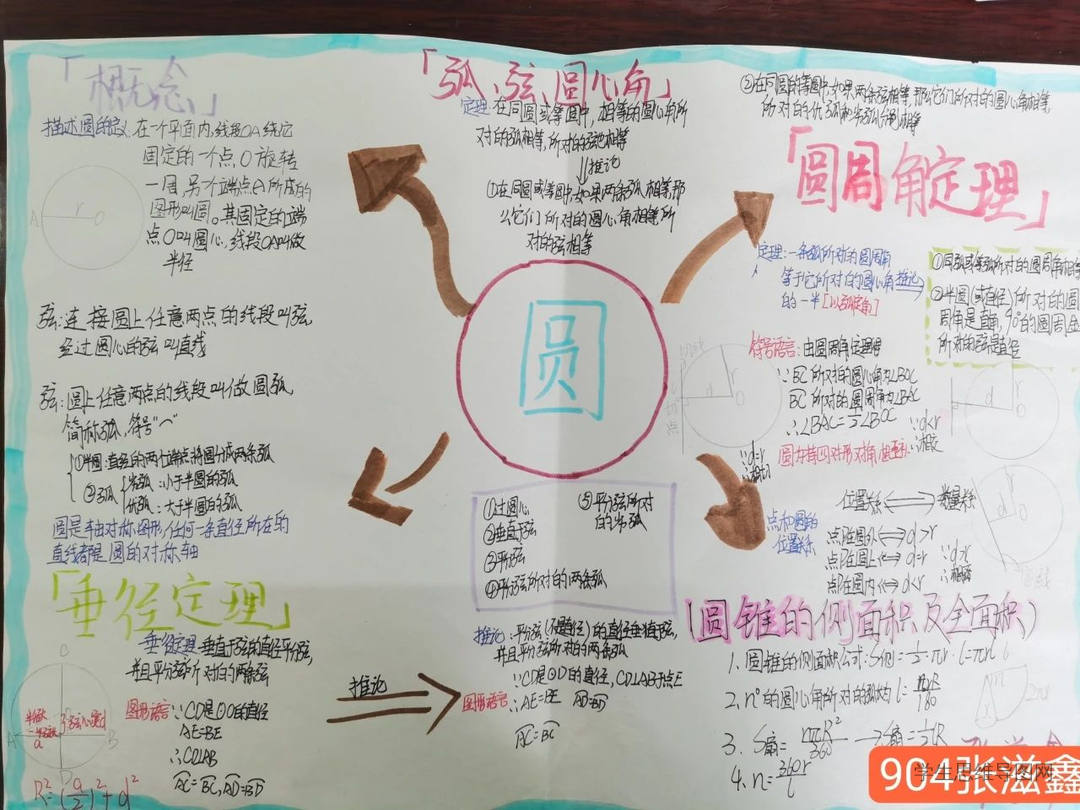 「概念」
描述圆的定义:在一个平面内,线段OA绕它
固定的一个点,O旋转
一周,另一个端点A所成的
图形叫圆。其固定的端
点O叫圆心,线段OA叫做
半径
A r O
弦:连接圆上任意两点的线段叫弦
经过圆心的弦叫直线
弦:圆上任意两点的线段叫做圆弧
简称弧,符号"⌒"
①半圆:直径的两个端点将圆分成两条弧
②弧 劣弧:小于半圆的弧
优弧:大于半圆的弧
圆是轴对称图形,任何一条直径所在的
直线都是圆的对称轴
「弧、弦、圆心角」
定理:在同圆或等圆中,相等的圆心角所
对的弧相等,所对的弦也相等
推论
①在同圆或等圆中,如果两条弧相等,那
么它们所对的圆心角相等,所
对的弦相等
②在同圆的等圆中,如果两条弦相等,那么它们所对的圆心角相等,
所对的优弧和劣弧分别相等
「圆周角定理」
定理:一条弧所对的圆周角
等于它所对的圆心角
的一半
推论
①同弧或等弧所对的圆周角相等
②半圆(或直径)所对的圆
周角是直角,90°的圆周
所对的弦是直径
符号语言:由圆周角定理得
∵BC所对的圆心角为∠BOC
BC所对的圆周角为∠BAC
∴∠BAC=½∠BOC
圆内接四边形对角
∵d=r
∴相切
∵d<r
∴相交
∵d>r
∴相离
圆
①过圆心
②垂直于弦
③平分弦
④平分弦所对的两条弧
⑤平分弦所对
的劣弧
点和圆的
位置关系
位置关系⟺数量关系
点P在圆外⟺d>r
点P在圆上⟺d=r
点P在圆内⟺d<r
「垂径定理」
垂径定理:垂直于弦的直径平分弦,
并且平分弦所对的两条弧
图形语言:∵CD是⊙O的直径
AE=BE
∴CD⊥AB
AC=BC,AD=BD
A B
R²=(a/2)²+d²
推论
推论:平分弦(不是直径)的直径垂直于弦,
并且平分弦所对的两条弧
图形语言:∵CD是⊙O的直径,CD⊥AB于点E
∴AE=BE AD=BD
AC=BC
(圆锥的侧面积及全面积)
1.圆锥的侧面积公式:S侧=½·2πr·l=πrl
2.n°的圆心角所对的弧长为l=nπR/180
3.S扇=nπR²/360→S扇=½lR
4.n=360r/l
学生思维导图网
904张滋鑫